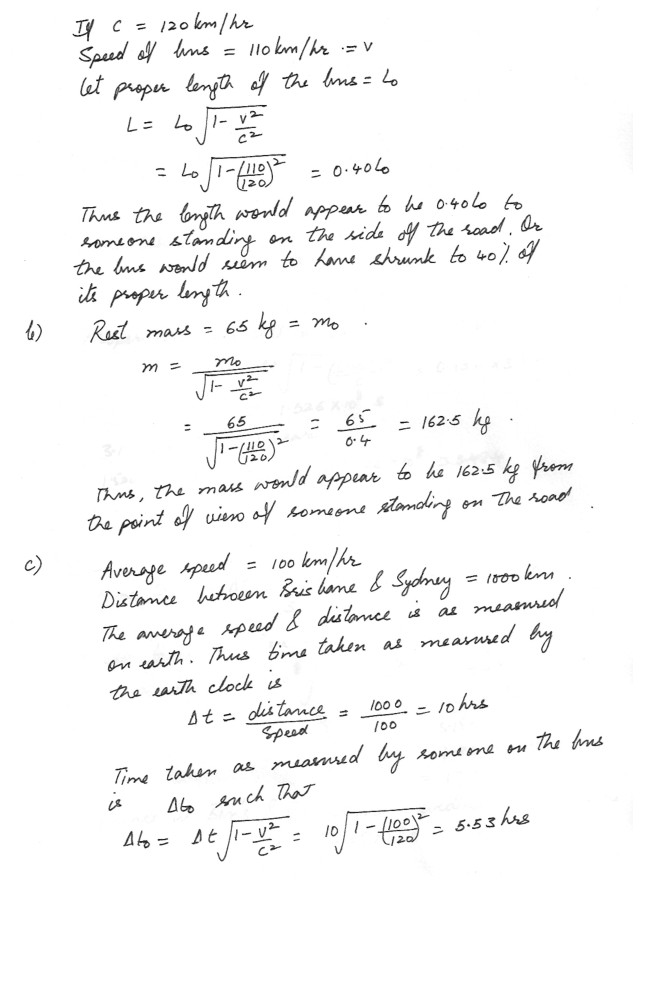 If c = 120 km/hr
Speed of bus = 110 km/hr = v
Let proper length of the bus = L₀
L = L₀ √(1 - v²/c²)
= L₀ √(1 - (110/120)²) = 0.40 L₀
Thus the length would appear to be 0.40 L₀ to
someone standing on the side of the road. Or
the bus would seem to have shrunk to 40% of
its proper length.
b) Rest mass = 65 kg = m₀.
m = m₀ / √(1 - v²/c²)
= 65 / √(1 - (110/120)²) = 65/0.4 = 162.5 kg.
Thus, the mass would appear to be 162.5 kg from
the point of view of someone standing on the road.
c) Average speed = 100 km/hr
Distance between Brisbane & Sydney = 1000 km.
The average speed & distance is as measured
on earth. Thus time taken as measured by
the earth clock is
Δt = distance/speed = 1000/100 = 10 hrs
Time taken as measured by someone on the bus
is Δt₀ such that
Δt₀ = Δt √(1 - v²/c²) = 10 √(1 - (100/120)²) = 5.53 hrs